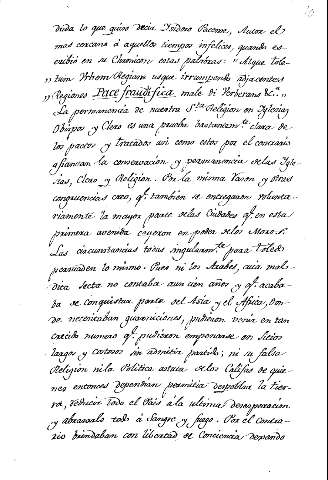 duda lo que quiso decir Isidoro Pacense, Autor el
mas cercano à aquellos tiempos infelices, quando es-
cribió en su Chronicon estas palabras: "Atque Tole-
" tum Urbem Regiam usque irrumpendo adjacentes
" Regiones Pace fraudifica male di Verberans &c."
La permanencia de nuestra Sta. Religion en Iglesias
Obispos y Clero es una prueba bastantemte. clara de
los pactos y tratados asi como estos por el contrario
afianzan la conservacion y permanencia de las Igle-
sias, Clero y Religion. Por la misma razon y otras
congruencias creo, qe. tambien se entregaron volunta-
riamente la mayor parte de las Ciudades qe. en esta
primera avenida cayeron en poder de los Moros.
Las circunstancias todas singularmte. para Toledo
persuaden lo mismo. Pues ni los Arabes, cuia mal-
dita Secta no contaba aun cien años y qe. acaba-
ba de conquistar parte del Asia y el Africa, don-
de necesitaban guarniciones, pudieron venir en tan
crecido numero qe. pudieron empeñarse en Sitios
largos y costosos sin admitir partido; ni su falsa
Religion ni la Politica astuta de los Califas de quie-
nes entonces dependian permitia despoblar la tier-
ra, reducir todo el Pais à la ultima desesperacion
y abrasarlo todo à Sangre y fuego. Por el contra-
rio brindaban con libertad de Conciencia dexando